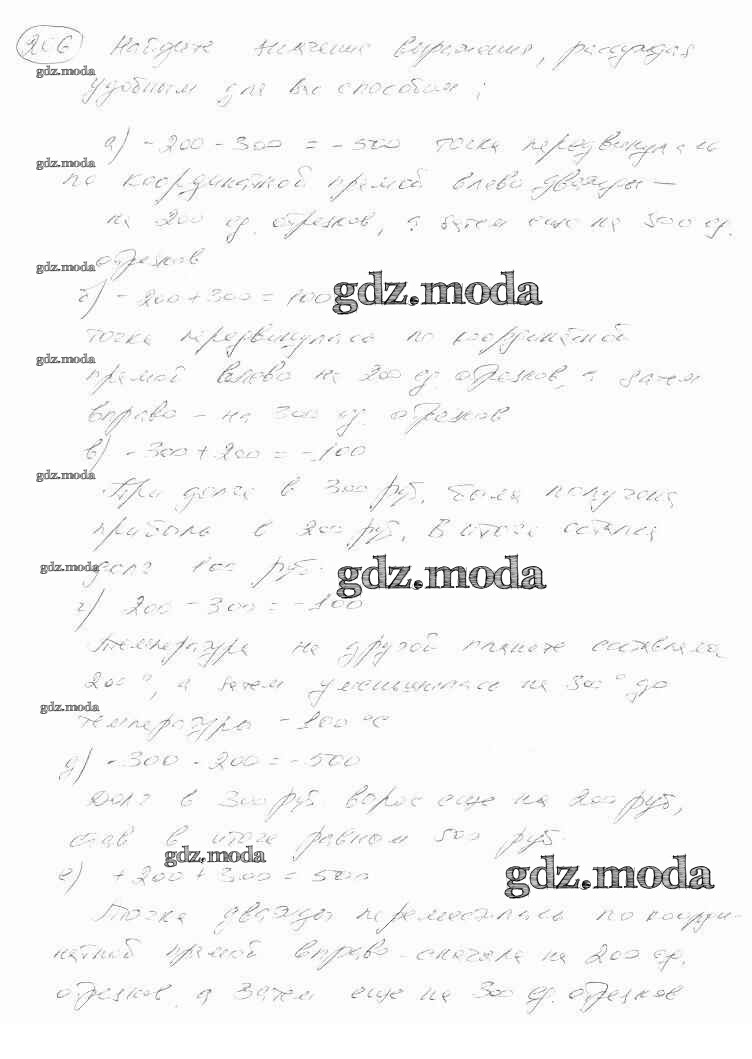 206 Найдите значение выражения, рассуждая
gdz.moda
удобным для вас способом:
а) -200 - 300 = -500 точка передвинулась
gdz.moda
по координатной прямой влево дважды —
на 200 ед. отрезков, а затем еще на 300 ед.
gdz.moda
отрезков
б) -200 + 300 = 100
gdz.moda
точка передвинулась по координатной
gdz.moda
прямой влево на 200 ед. отрезков, а затем
вправо - на 300 ед. отрезков
в) -300 + 200 = -100
gdz.moda
При долге в 300 руб. была получена
прибыль в 200 руб. В итоге остался
gdz.moda
долг 100 руб.
gdz.moda
г) 200 - 300 = -100
температура на другой планете составляла
200°, а затем уменьшилась на 300° до
gdz.moda
температуры -100 °С
д) -300 - 200 = -500
Долг в 300 руб. вырос еще на 200 руб,
став в итоге равном 500 руб.
gdz.moda
е) +200 + 300 = 500
gdz.moda
Точка дважды переместилась по коорди-
натной прямой вправо - сначала на 200 ед.
отрезков, а затем еще на 300 ед. отрезков